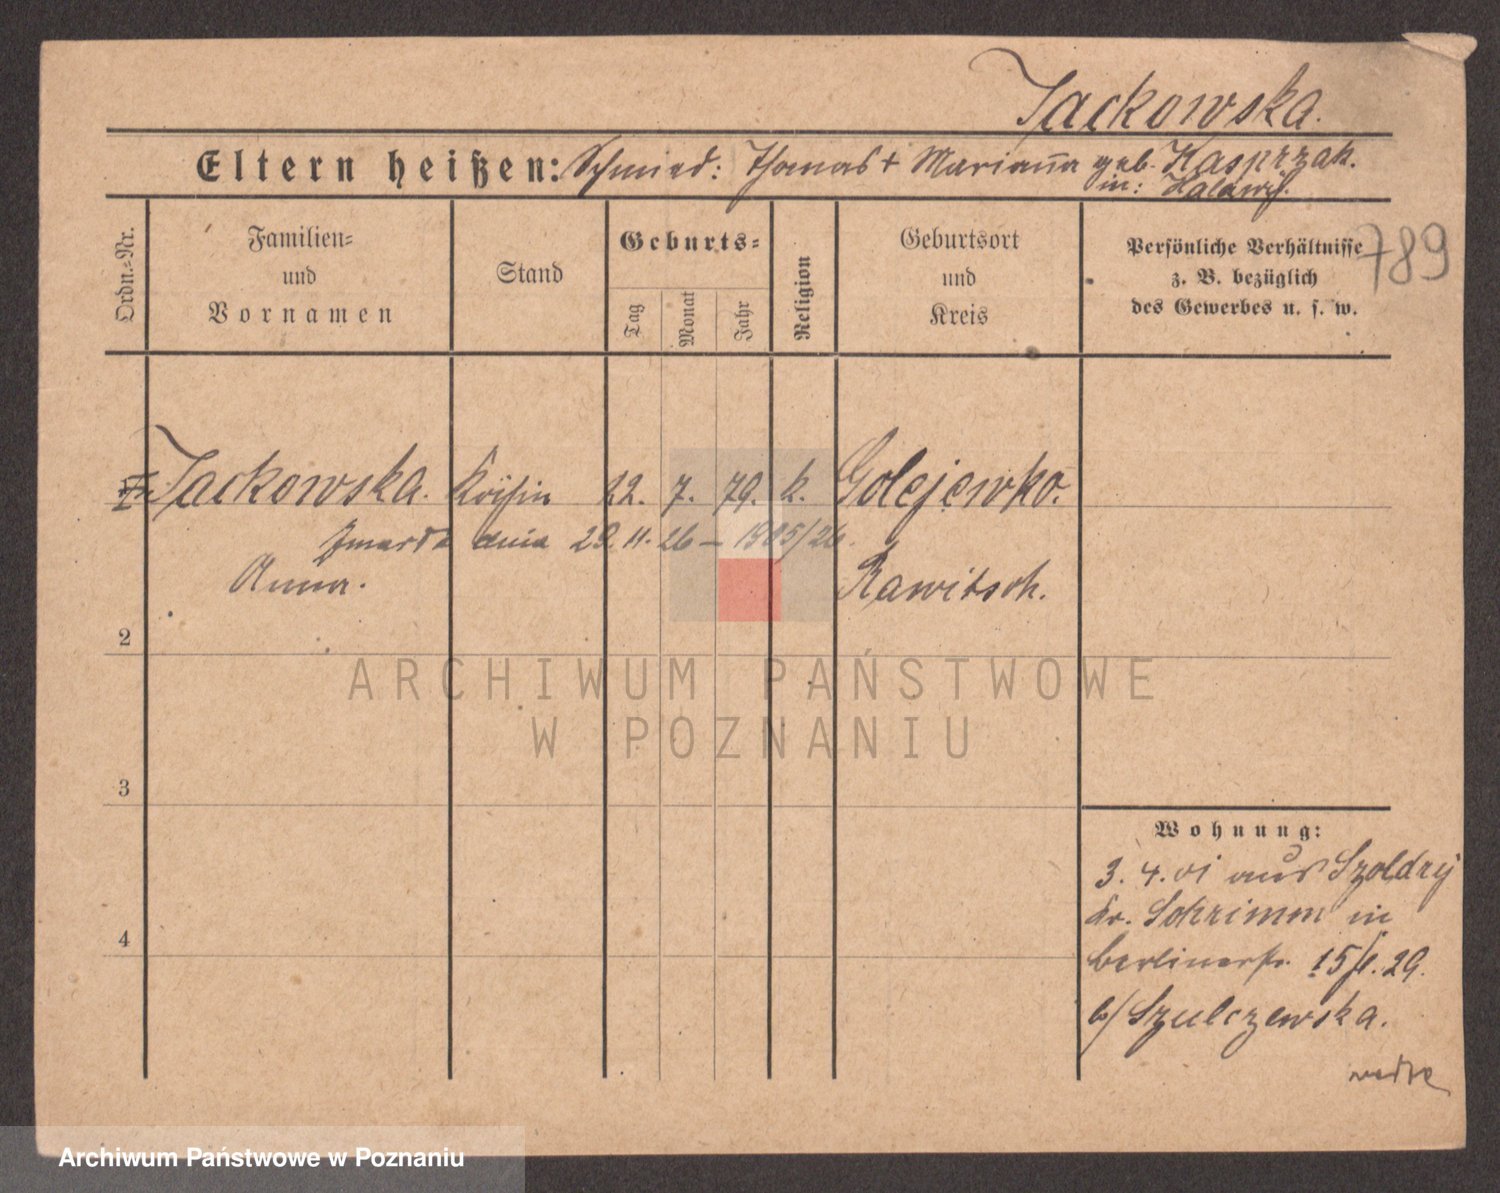 Jackowska.
Eltern heißen: Schmied: Thomas + Marianna geb. Kasprzak.
in:
Ordn.-Nr.
Familien-
und
Vornamen
Stand
Geburts-
Tag
Monat
Jahr
Religion
Geburtsort
und
Kreis
Persönliche Verhältnisse
z. B. bezüglich
des Gewerbes u. s. w.
789
Jackowska. Köchin 12. 7. 79. k. Golejewko.
Zmarła dnia 29. 11. 26 –
Anna. Rawitsch.
2
3
4
Wohnung:
3. 4. 01 aus Szoldry
Kr. Schrimm in
Berlinerstr. 15
b/ Szulczewska.
ARCHIWUM PAŃSTWOWE
W POZNANIU
Archiwum Państwowe w Poznaniu